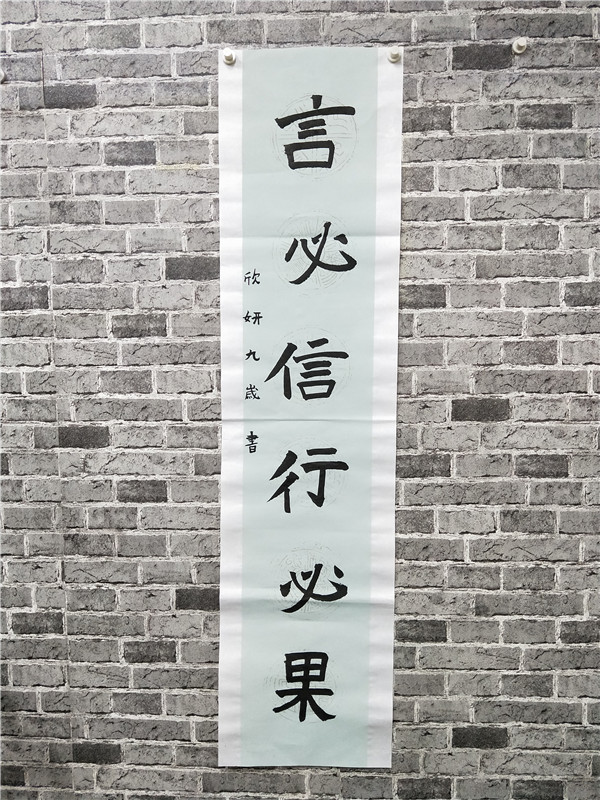 言必信行必果
欣妍九歲書